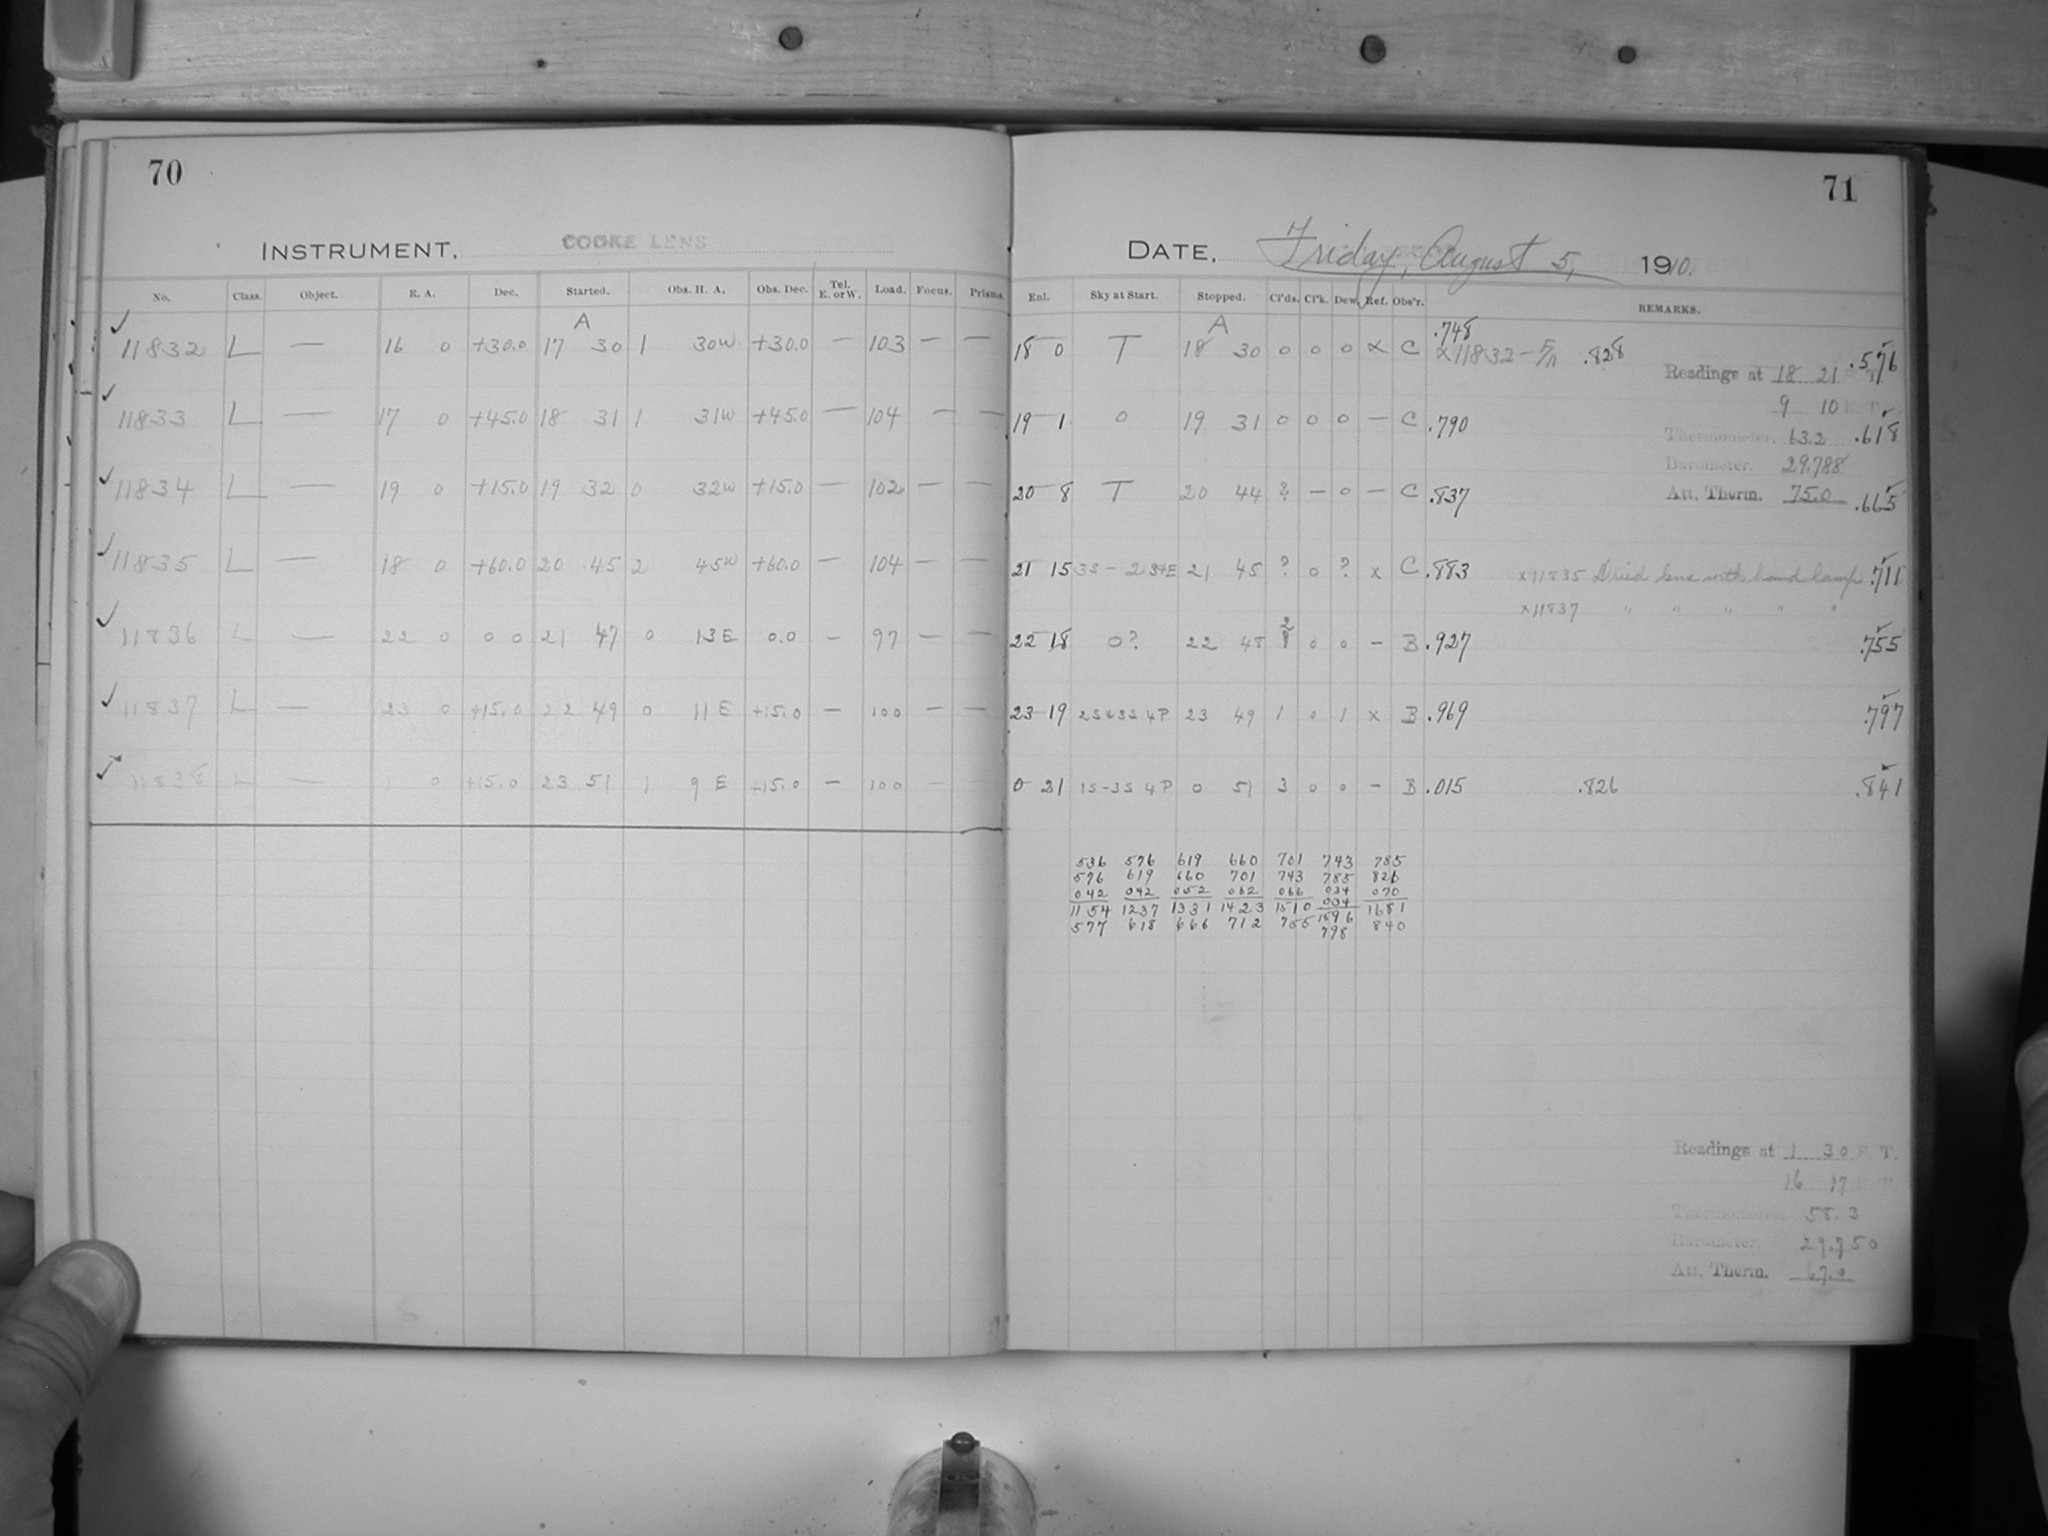 70
INSTRUMENT, COOKE LENS
No. Class. Object. R. A. Dec. Started. Obs. H. A. Obs. Dec. Tel. E. or W. Load. Focus. Prisms.
A
✓ 11832 L — 16 0 +30.0 17 30 1 30W +30.0 — 103 — —
✓ 11833 L — 17 0 +45.0 18 31 1 31W +45.0 — 104 — —
✓ 11834 L — 19 0 +15.0 19 32 0 32W +15.0 — 102 — —
✓ 11835 L — 18 0 +60.0 20 45 2 45W +60.0 — 104 — —
✓ 11836 L — 22 0 0 0 21 47 0 13E 0.0 — 97 — —
✓ 11837 L — 23 0 +15.0 22 49 0 11 E +15.0 — 100 — —
✓ 11838 L — 1 0 +15.0 23 51 1 9 E +15.0 — 100 — —
71
DATE, Friday, August 5, 1910.
Enl. Sky at Start. Stopped. Cl'ds. Cl'k. Dew. Ref. Obs'r. REMARKS.
A .748
18 0 T 18 30 0 0 0 x C x11832 - F/11 .828 .576
Readings at 18 21 S. T.
9 10 E. T.
19 1 0 19 31 0 0 0 — C .790 Thermometer. 63.2 .618
Barometer. 29.788
20 8 T 20 44 ? — 0 — C .837 Att. Therm. 75.0 .665
21 15 3S - 2S+E 21 45 ? 0 ? x C .883 x11835 Dried lens with hand lamp .711
x11837 " " " " "
22 18 0? 22 48 0 0 — B .927 .755
23 19 2S&3S 4P 23 49 1 0 1 x B .969 .797
0 21 1S-3S 4P 0 51 3 0 0 — B .015 .826 .841
536 576 619 660 701 743 785
576 619 660 701 743 785 826
042 042 052 062 066 034 070
034
1154 1237 1331 1423 1510 1596 1681
577 618 666 712 755 798 840
Readings at 1 30 S. T.
16 17
Thermometer. 58.3
Barometer. 29.750
Att. Therm. 67.0